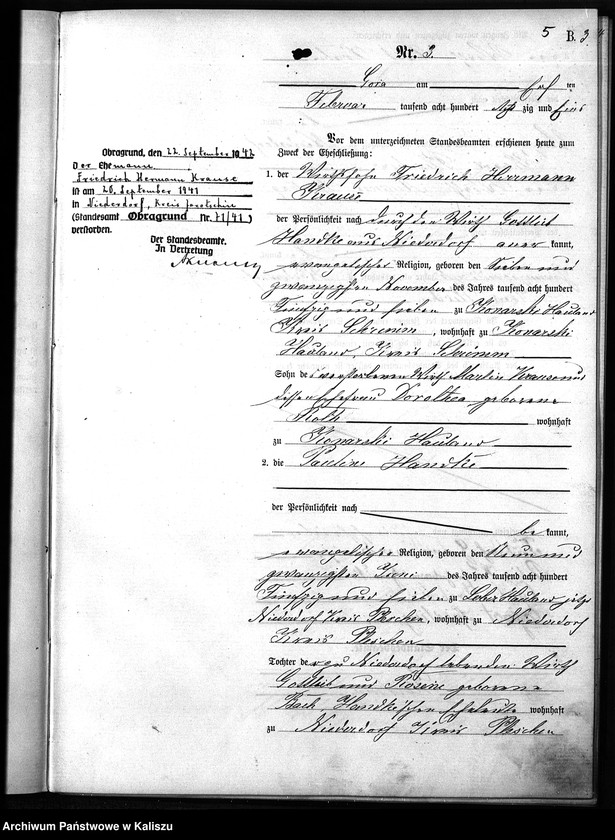 5 B. 3
Nr. 3.
Gora am elf ten
Februar tausend acht hundert acht zig und eins
Vor dem unterzeichneten Standesbeamten erschienen heute zum
Zweck der Eheschließung:
1. der Wirthssohn Friedrich Herrmann
Krause
der Persönlichkeit nach durch den Wirth Gottlieb
Handke aus Niederdorf aner kannt,
evangelischer Religion, geboren den Sieben und
zwanzigsten November des Jahres tausend acht hundert
Fünfzig und sieben zu Konarski Hauland
Kreis Schrimm, wohnhaft zu Konarski
Hauland, Kreis Schrimm
Sohn des verstorbenen Wirth Martin Krause und
dessen Ehefrau Dorothea geborene
wohnhaft
zu Konarski Hauland
2. die Pauline Handke
der Persönlichkeit nach
be kannt,
evangelischer Religion, geboren den Neun und
zwanzigsten Juni des Jahres tausend acht hundert
Fünfzig und sieben zu Hauland jetzt
Niederdorf Kreis Pleschen, wohnhaft zu Niederdorf
Kreis Pleschen
Tochter der zu Niederdorf lebenden Wirth
Gottlieb und Rosine geborene
Bach, Handkeschen Eheleute wohnhaft
zu Niederdorf Kreis Pleschen
Obragrund, den 22. September 1942
Der Ehemann
Friedrich Hermann Krause
ist am 20. September 1941
in Niederdorf, Kreis Jarotschin
(Standesamt Obragrund Nr. 71/41)
verstorben.
Der Standesbeamte.
In Vertretung
Archiwum Państwowe w Kaliszu